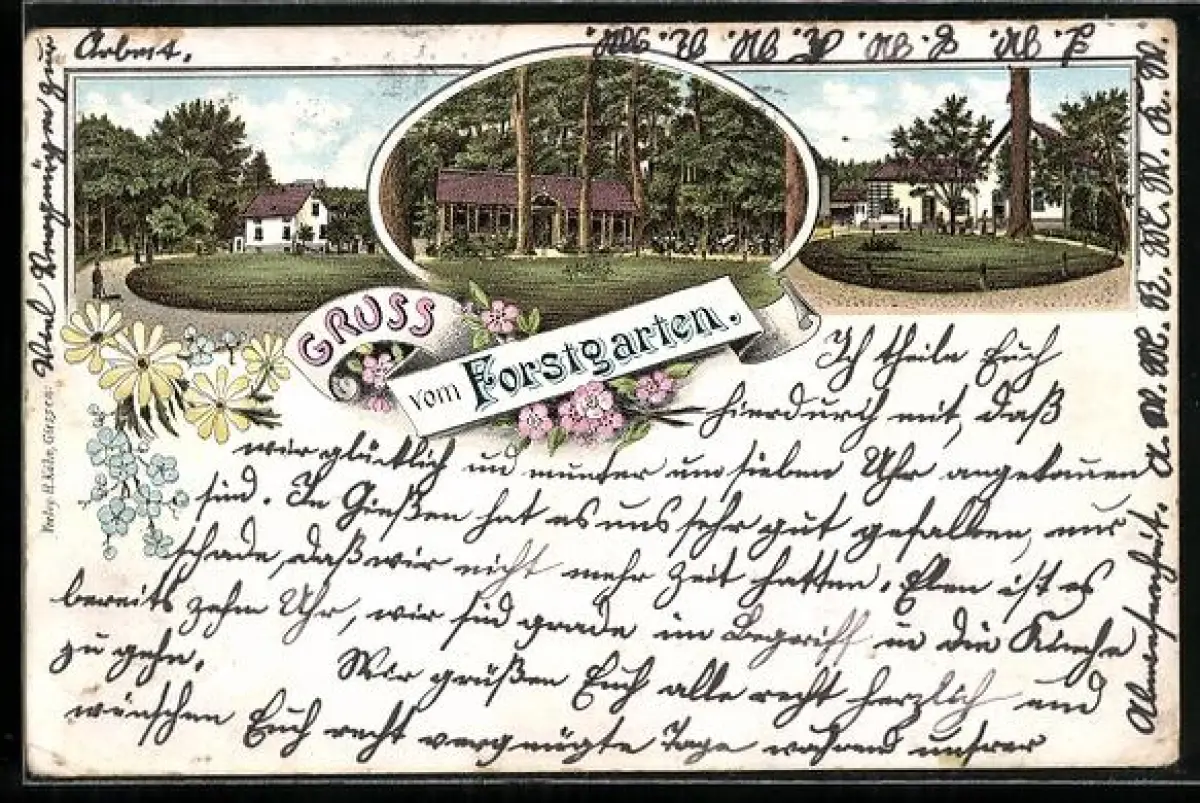 GRUSS
vom Forstgarten.
Verlag H. Kühn, Giessen.
Ich theile Euch
hierdurch mit, daß
wir glücklich und munter um sieben Uhr angekomen
sind. In Gießen hat es uns sehr gut gefallen, nur
schade, daß wir nicht mehr Zeit hatten. Eben ist es
bereits zehn Uhr, wir sind grade im Begriff in die Kirche
zu gehn.
Wir grüßen Euch alle recht herzlich und
wünschen Euch recht vergnügte Tage während unsrer
Abwesenheit.
Viel Vergnügen zur
Arbeit.